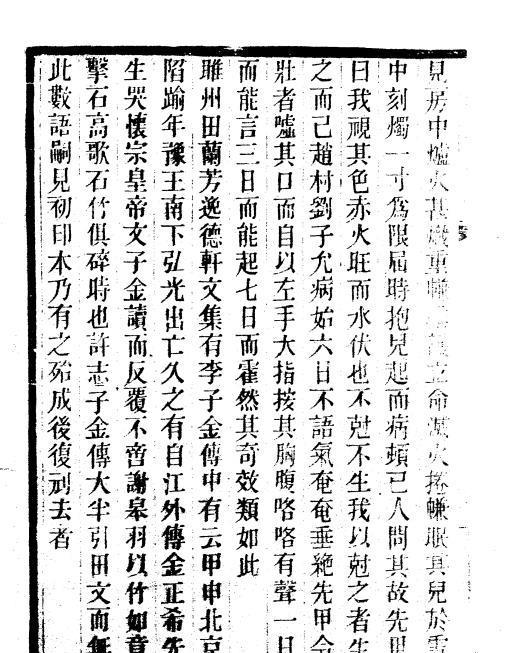 見房中爐火甚熾重㡘立命滅火捲㡘眠其兒於
中刻燭一寸為限屆時抱兒起而病頓已人問其故先
曰我視其色赤火旺而水伏也不尅不生我以尅之者生
之而已趙村劉子允病始六日不語氣奄奄垂絶先甲令
壯者噓其口而自以左手大指按其胸腹咯咯有聲一日
而能言三日而能起七日而霍然其奇效類如此
睢州田蘭芳逸德軒文集有李子金傳中有云甲申北京
陷踰年豫王南下弘光出亡久之有自江外傳金正希先
生哭懷宗皇帝文子金讀而反覆不啻謝皋羽以竹如意
擊石高歌石竹俱碎時也許志子金傳大半引田文而無
此數語嗣見初印本乃有之殆成後復剜去者